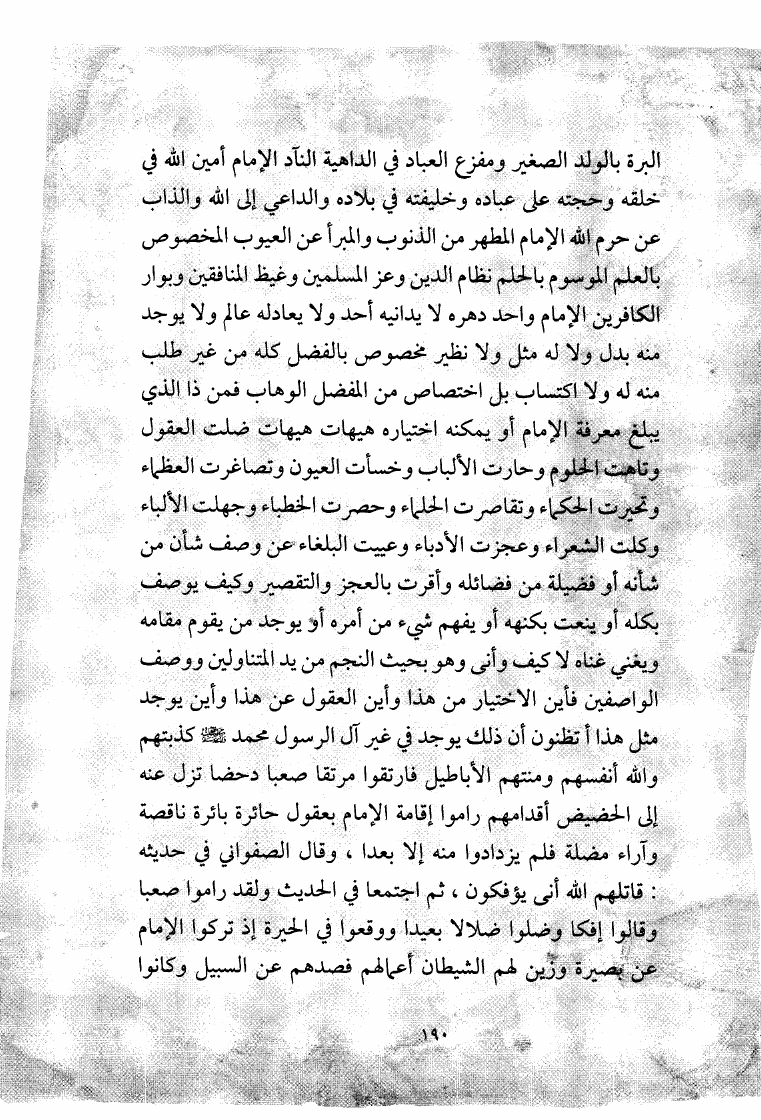 البرة بالولد الصغير ومفزع العباد في الداهية النآد الإمام أمين الله في
خلقه وحجته على عباده وخليفته في بلاده والداعي إلى الله والذاب
عن حرم الله الإمام المطهر من الذنوب والمبرأ عن العيوب المخصوص
بالعلم الموسوم بالحلم نظام الدين وعز المسلمين وغيظ المنافقين وبوار
الكافرين الإمام واحد دهره لا يدانيه أحد ولا يعادله عالم ولا يوجد
منه بدل ولا له مثل ولا نظير مخصوص بالفضل كله من غير طلب
منه له ولا اكتساب بل اختصاص من المفضل الوهاب فمن ذا الذي
يبلغ معرفة الإمام أو يمكنه اختياره هيهات هيهات ضلت العقول
وتاهت الحلوم وحارت الألباب وخسأت العيون وتصاغرت العظماء
وتحيرت الحكماء وتقاصرت الحلماء وحصرت الخطباء وجهلت الألباء
وكلت الشعراء وعجزت الأدباء وعييت البلغاء عن وصف شأن من
شأنه أو فضيلة من فضائله وأقرت بالعجز والتقصير وكيف يوصف
بكله أو ينعت بكنهه أو يفهم شيء من أمره أو يوجد من يقوم مقامه
ويغني غناه لا كيف وأنى وهو بحيث النجم من يد المتناولين ووصف
الواصفين فأين الاختيار من هذا وأين العقول عن هذا وأين يوجد
مثل هذا أ تظنون أن ذلك يوجد في غير آل الرسول محمد ﷺ كذبتهم
والله أنفسهم ومنتهم الأباطيل فارتقوا مرتقا صعبا دحضا تزل عنه
إلى الحضيض أقدامهم راموا إقامة الإمام بعقول حائرة بائرة ناقصة
وآراء مضلة فلم يزدادوا منه إلا بعدا ، وقال الصفواني في حديثه
: قاتلهم الله أنى يؤفكون ، ثم اجتمعا في الحديث ولقد راموا صعبا
وقالوا إفكا وضلوا ضلالا بعيدا ووقعوا في الحيرة إذ تركوا الإمام
عن بصيرة وزين لهم الشيطان أعمالهم فصدهم عن السبيل وكانوا
١٩٠